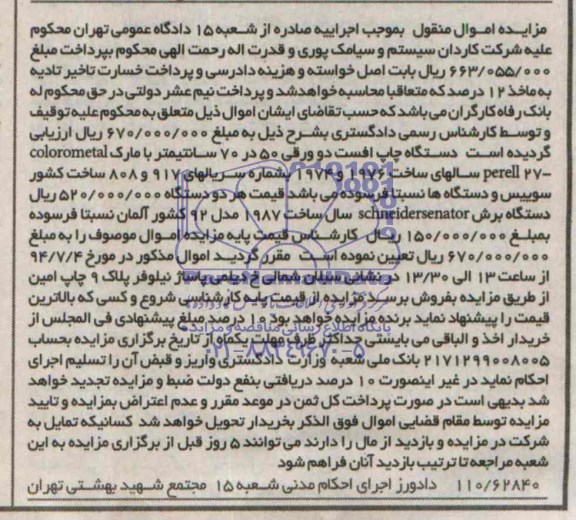 مزایـده امـوال منقول بموجب اجراییه صادره از شـعبه ۱۵ دادگاه عمومی تهران محکوم
علیه شرکت کاردان سیستم و سیامک پوری و قدرت اله رحمت الهی محکوم بپرداخت مبلغ
۶۶۳/۰۵۵/۰۰۰ ریال بابت اصل خواسته و هزینه دادرسی و پرداخت خسارت تاخیر تادیه
به ماخذ ۱۲ درصد که متعاقبا محاسبه خواهد شد و پرداخت نیم عشر دولتی در حق محکوم له
بانک رفاه کارگران می باشد که حسب تقاضای ایشان اموال ذیل متعلق به محکوم علیه توقیف
و توسـط کارشناس رسمی دادگستری بشـرح ذیل به مبلغ ۶۷۰/۰۰۰/۰۰۰ ریال ارزیابی
گردیده اسـت دستگاه چاپ افست دو ورقی ۵۰ در ۷۰ سـانتیمتر با مارک colorometal
perell ۲۷- سـالهای ساخت ۱۹۷۶ و ۱۹۷۴ بشماره سـریالهای ۹۱۷ و ۸۰۸ ساخت کشور
سوییس و دستگاه ها نسبتا فرسوده می باشد قیمت هر دو دستگاه ۵۲۰/۰۰۰/۰۰۰ ریال
دستگاه برش schneidersenator سال ساخت ۱۹۸۷ مدل ۹۲ کشور آلمان نسبتا فرسوده
بمبلـغ ۱۵۰/۰۰۰/۰۰۰ ریـال کارشـناس قیمت پایه مزایده امـوال موصوف را به مبلغ
۶۷۰/۰۰۰/۰۰۰ ریال تعیین نموده اسـت مقرر گردیـد اموال مذکور در مورخ ۹۴/۷/۴
از ساعت ۱۳ الی ۱۳/۳۰ در نشانی سبلان شمالی خ دیلمی پاساژ نیلوفر پلاک ۹ چاپ امین
از طریق مزایده بفروش برسـد مزایده از قیمت پایه کارشناسی شروع و کسی که بالاترین
قیمت را پیشنهاد نماید برنده مزایده خواهد بود ۱۰ درصد مبلغ پیشنهادی فی المجلس از
خریدار اخذ و الباقی می بایستی حداکثر ظرف مهلت یکماه از تاریخ برگزاری مزایده بحساب
۲۱۷۱۲۹۹۰۰۸۰۰۵ بانک ملی شعبه وزارت دادگستری واریز و قبض آن را تسلیم اجرای
احکام نماید در غیر اینصورت ۱۰ درصد دریافتی بنفع دولت ضبط و مزایده تجدید خواهد
شد بدیهی است در صورت پرداخت کل ثمن در موعد مقرر و عدم اعتراض بمزایده و تایید
مزایده توسط مقام قضایی اموال فوق الذکر بخریدار تحویل خواهد شد کسانیکه تمایل به
شرکت در مزایده و بازدید از مال را دارند می توانند ۵ روز قبل از برگزاری مزایده به این
شعبه مراجعه تا ترتیب بازدید آنان فراهم شود
۱۱۰/۶۲۸۴۰ دادورز اجرای احکام مدنی شـعبه ۱۵ مجتمع شـهید بهشـتی تهران
پایگاه اطلاع رسانی مناقصه و مزایده
۰۲۱-۸۸۳۴۹۶۷۰-۵